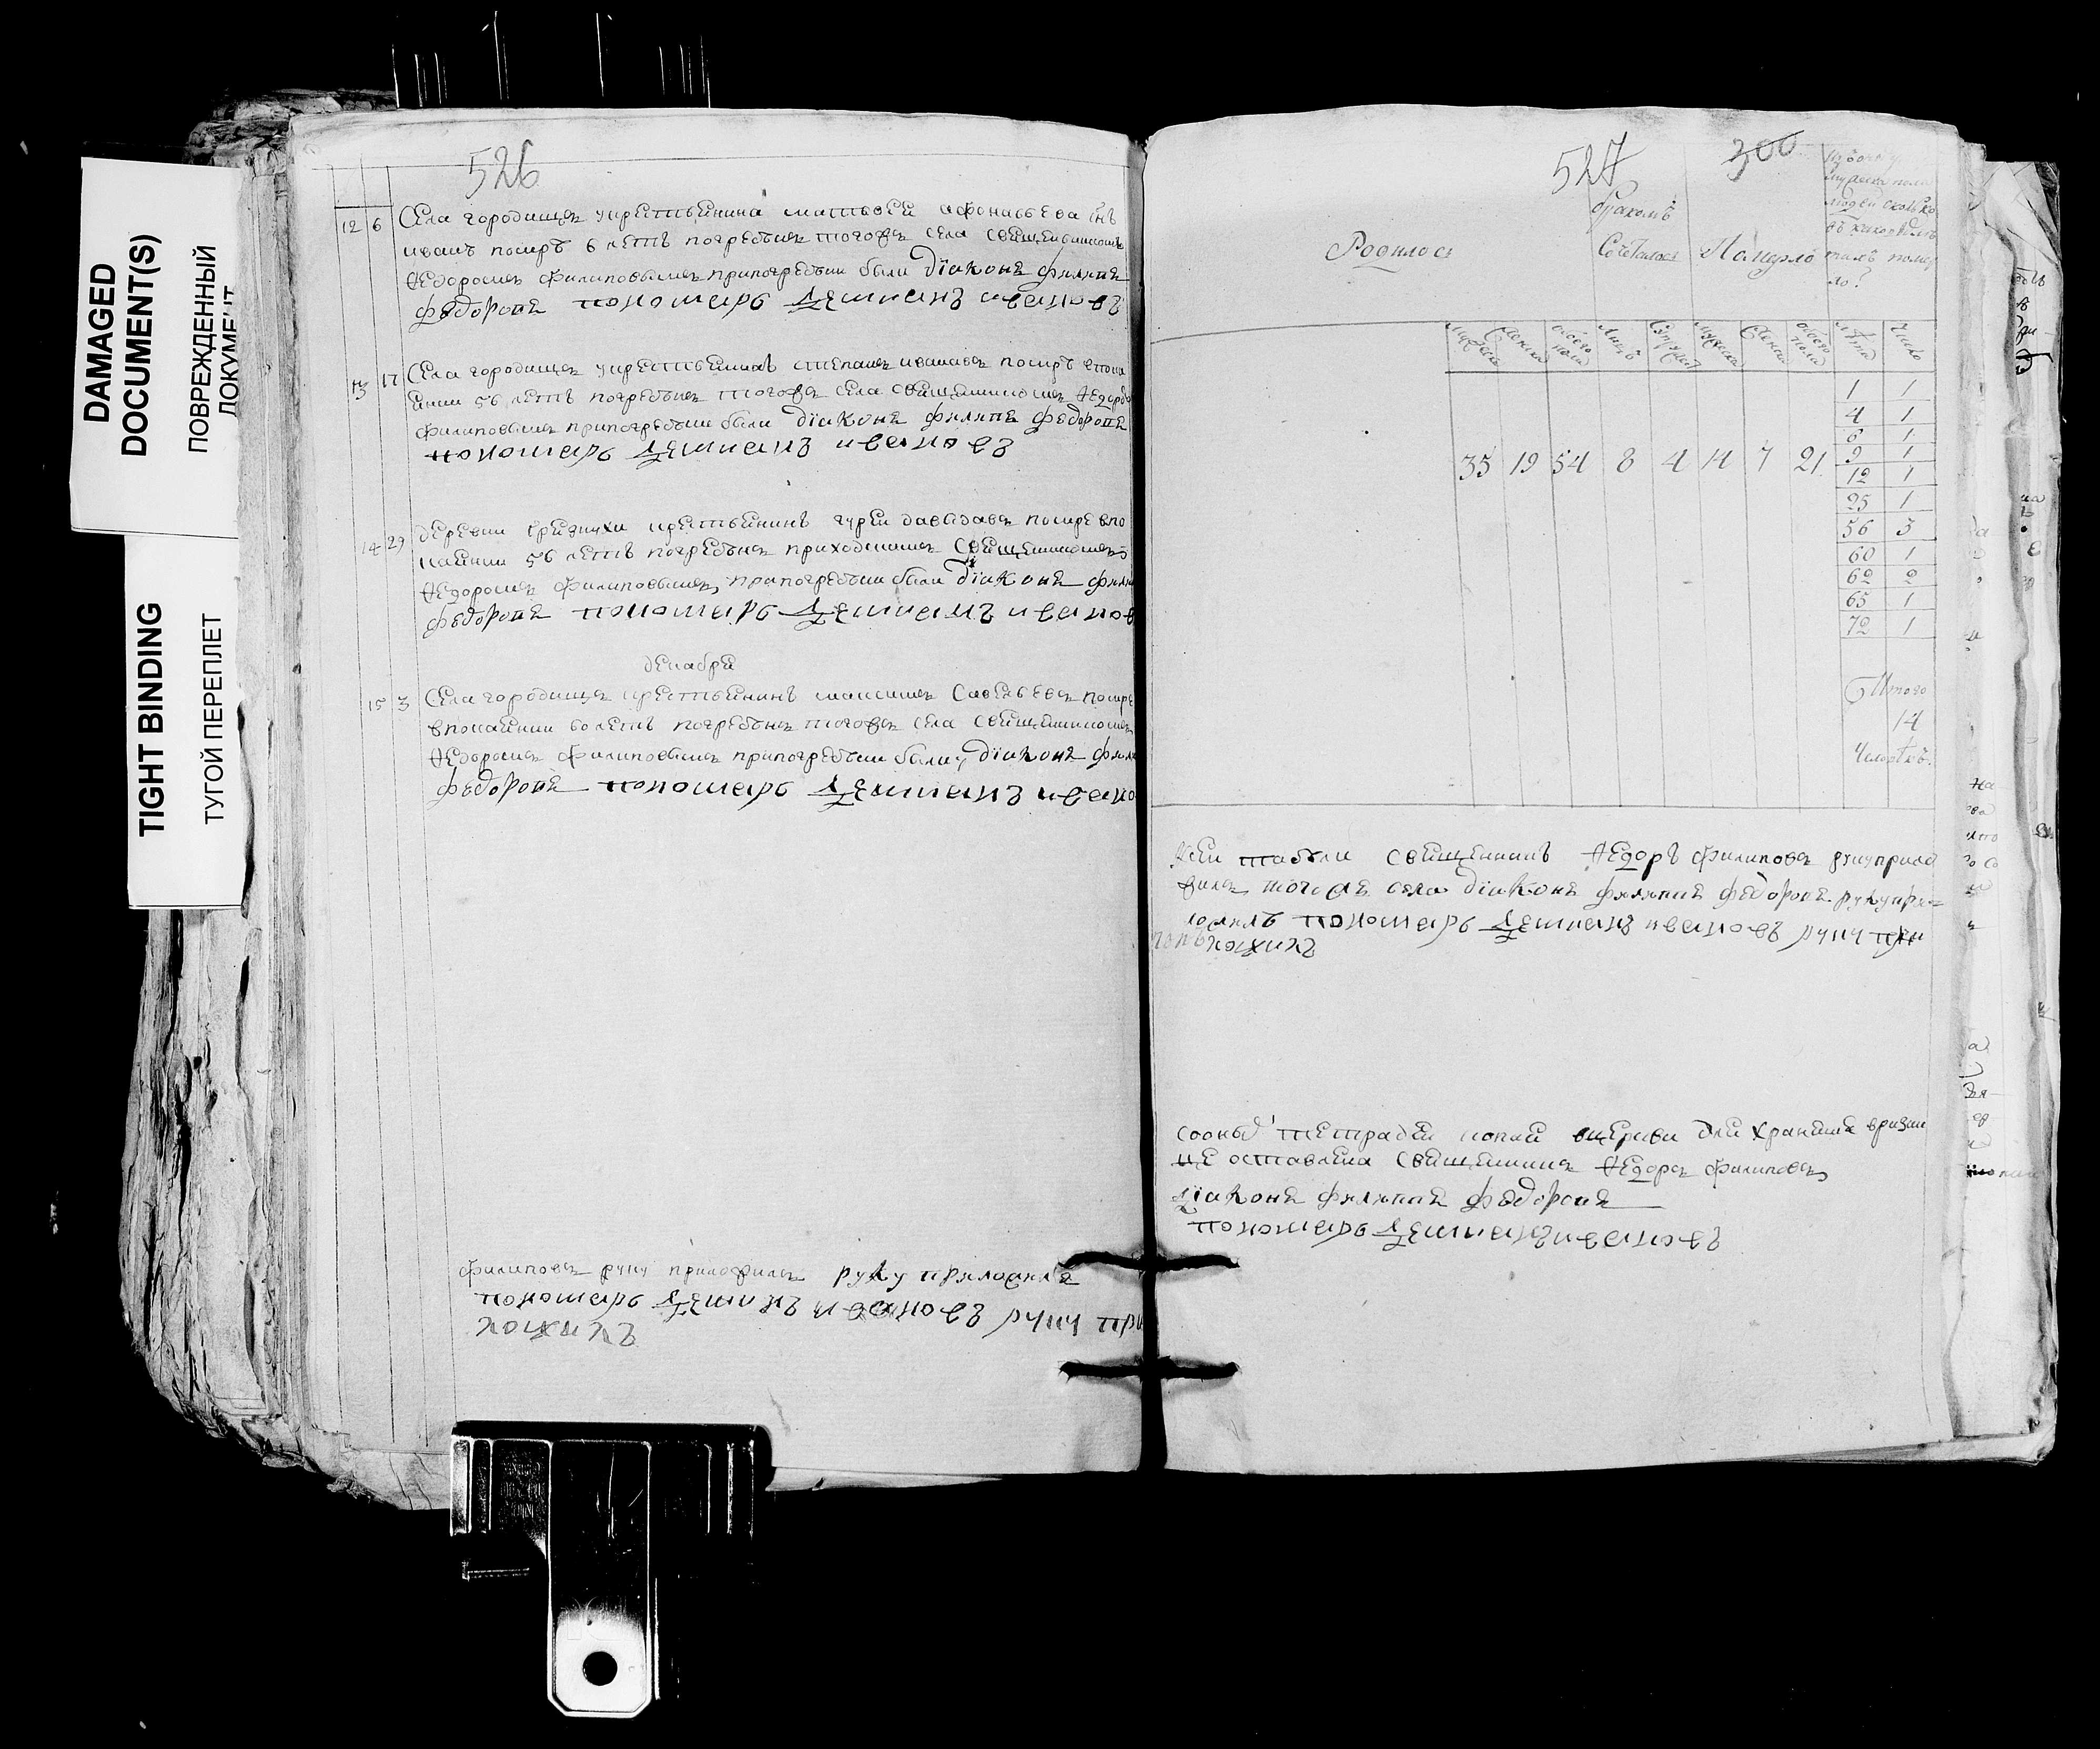 DAMAGED
DOCUMENT(S)
ПОВРЕЖДЕННЫЙ
ДОКУМЕНТ
TIGHT BINDING
ТУГОЙ ПЕРЕПЛЕТ
526
12 6 Села городищъ укрестьянина матвея афонасьева снъ
иванъ помръ 6 летъ погребенъ тогожъ села священникомъ
Федоромъ филиповымъ припогребени были діаконъ филипъ
федоровъ пономарь демианъ ивановъ
13 17 Села городищъ крестьянинъ степанъ ивановъ помръ впока
янии 56 летъ погребенъ тогожъ села священникомъ Федоро
филиповымъ припогребени были діаконъ филипъ федоровъ
пономарь демианъ ивановъ
14 29 деревни крестьянинъ гурей давыдавъ помре впо
каянии 56 летъ погребенъ приходскимъ священникомъ
Федоромъ филиповымъ припогребени были діаконъ фили
федоровъ пономарь демианъ иванов
декабря
15 3 Села городищъ крестьянинъ максимъ Савельевъ помре
впокаянии 60 летъ погребенъ тогожъ села священникомъ
Федоромъ филиповымъ припогребени были діаконъ фили
федоровъ пономарь демианъ ивано
филиповъ руку приложилъ руку приложилъ
пономарь демианъ ивановъ руку при
ложилъ
527 300
Родилось
бракомъ
Сочеталось
Померло
людей сколько
талъ помер
ло?
мужеска женска обоего пола мужеска женска обоего пола лѣта число
35 19 54 8 4 14 7 21
1 1
4 1
6 1
9 1
12 1
25 1
56 3
60 1
62 2
65 1
72 1
Итого
14
Человѣкъ
священникъ Федоръ филиповъ руку прило
жилъ тогожъ села діаконъ филипъ федоровъ руку при=
ложилъ пономарь демианъ ивановъ руку при
ложилъ
тетради копия вцеркви для хранения вризни
це оставлена священникъ Федоръ филиповъ
діаконъ филипъ федоровъ
пономарь демианъ ивановъ